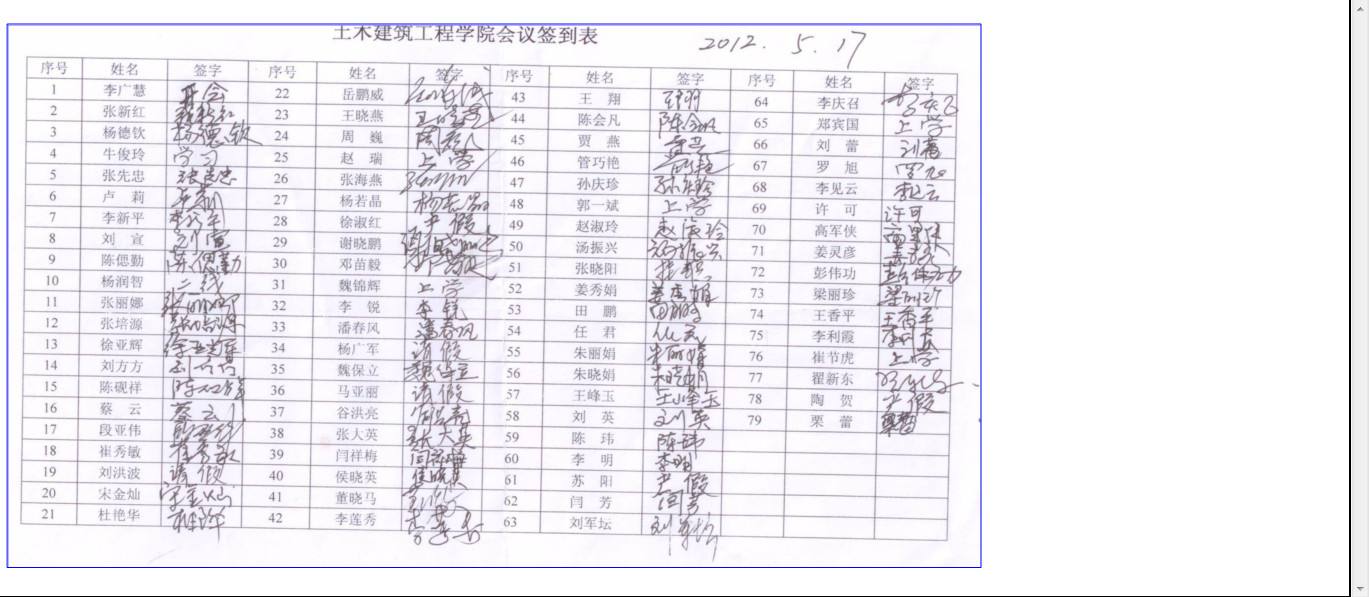 土木建筑工程学院会议签到表
2012. 5. 17
序号 姓名 签字 序号 姓名 签字 序号 姓名 签字 序号 姓名 签字
1 李广慧 开会 22 岳鹏威 43 王 翔 王翔 64 李庆召
2 张新红 张新红 23 王晓燕 王晓燕 44 陈会凡 陈会凡 65 郑宾国 上学
3 杨德钦 杨德钦 24 周 巍 周巍 45 贾 燕 66 刘 蕾 刘蕾
4 牛俊玲 学习 25 赵 瑞 上学 46 管巧艳 67 罗 旭 罗旭
5 张先忠 张先忠 26 张海燕 47 孙庆珍 68 李见云
6 卢 莉 卢莉 27 杨若晶 48 郭一斌 上学 69 许 可 许可
7 李新平 28 徐淑红 产假 49 赵淑玲 赵淑玲 70 高军侠
8 刘 宣 刘宣 29 谢晓鹏 50 汤振兴 汤振兴 71 姜灵彦
9 陈偲勤 陈偲勤 30 邓苗毅 51 张晓阳 72 彭伟功
10 杨润智 二线 31 魏锦辉 上学 52 姜秀娟 姜秀娟 73 梁丽珍
11 张丽娜 张丽娜 32 李 锐 李锐 53 田 鹏 田鹏 74 王香平 王香平
12 张培源 33 潘春风 潘春风 54 任 君 75 李利霞
13 徐亚辉 34 杨广军 请假 55 朱丽娟 朱丽娟 76 崔节虎 上学
14 刘方方 35 魏保立 魏保立 56 朱晓娟 朱晓娟 77 翟新东
15 陈砚祥 36 马亚丽 请假 57 王峰玉 王峰玉 78 陶 贺 产假
16 蔡 云 蔡云 37 谷洪亮 58 刘 英 刘英 79 栗 蕾
17 段亚伟 38 张大英 张大英 59 陈 玮 陈玮
18 崔秀敏 崔秀敏 39 闫祥梅 60 李 明 李明
19 刘洪波 请假 40 侯晓英 61 苏 阳 产假
20 宋金灿 宋金灿 41 董晓马 62 闫 芳 闫芳
21 杜艳华 42 李莲秀 63 刘军坛